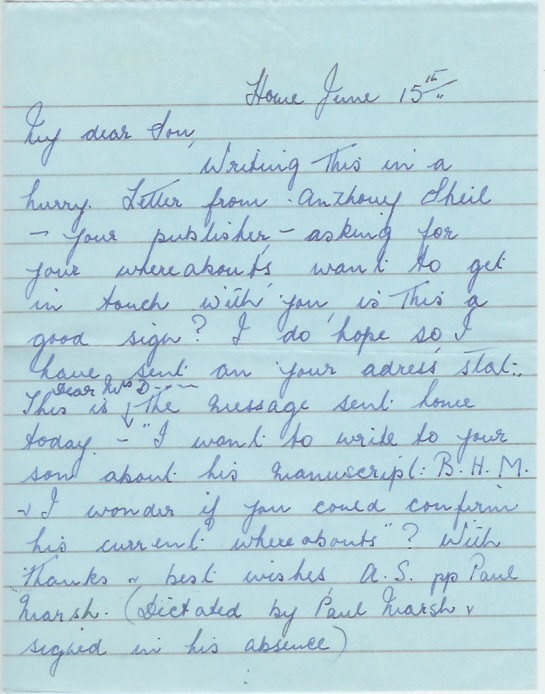 Home June 15th
My dear Son,
Writing this in a
hurry. Letter from Anthony Sheil
- your publisher - asking for
your whereabouts want to get
in touch with you, is this a
good sign? I do hope so I
have sent on your adress stat:.
Dear Mrs D----
This is ↓ the message sent home
today. - "I want to write to your
son about his manuscript: B.H.M.
& I wonder if you could confirm
his current whereabouts"? With
thanks & best wishes A.S. pp Paul
Marsh. (Dictated by Paul Marsh &
signed in his absence)